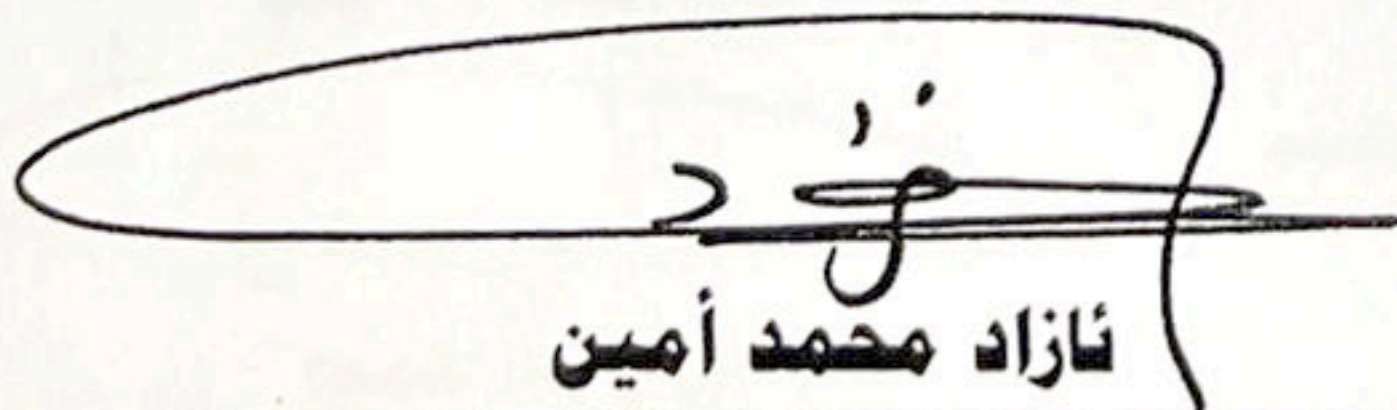 ئازاد محمد أمين